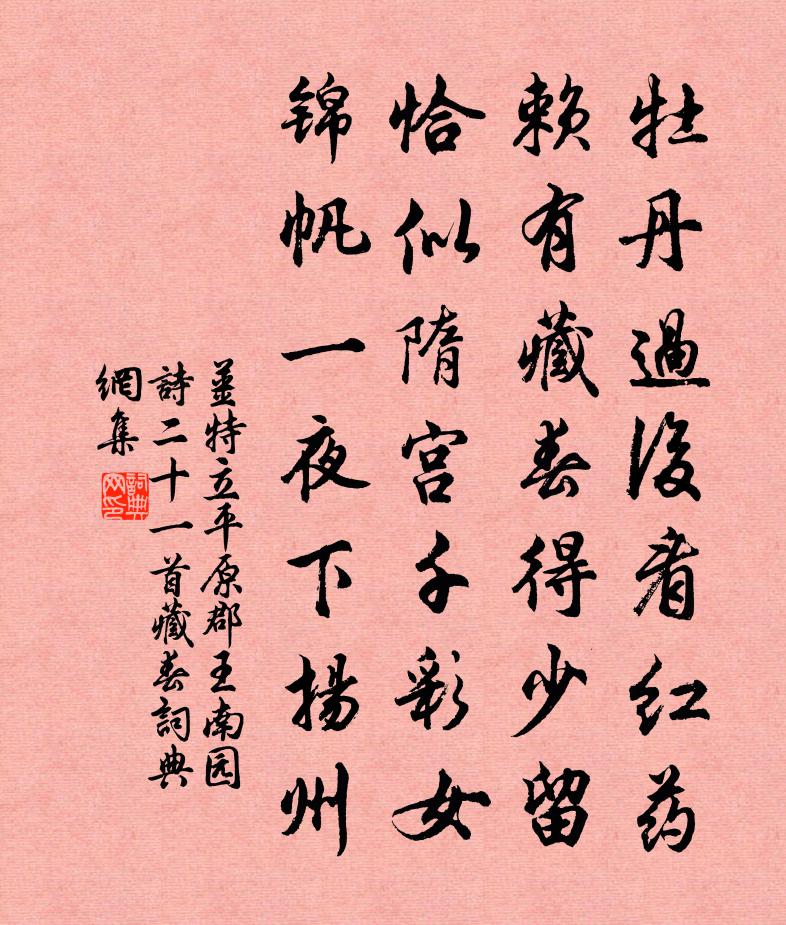 牡丹過後看红药
赖有藏春得少留
恰似隋宫千彩女
锦帆一夜下揚州
姜特立平原郡王南园
詩二十一首藏春詞典
網集
詞典
网印